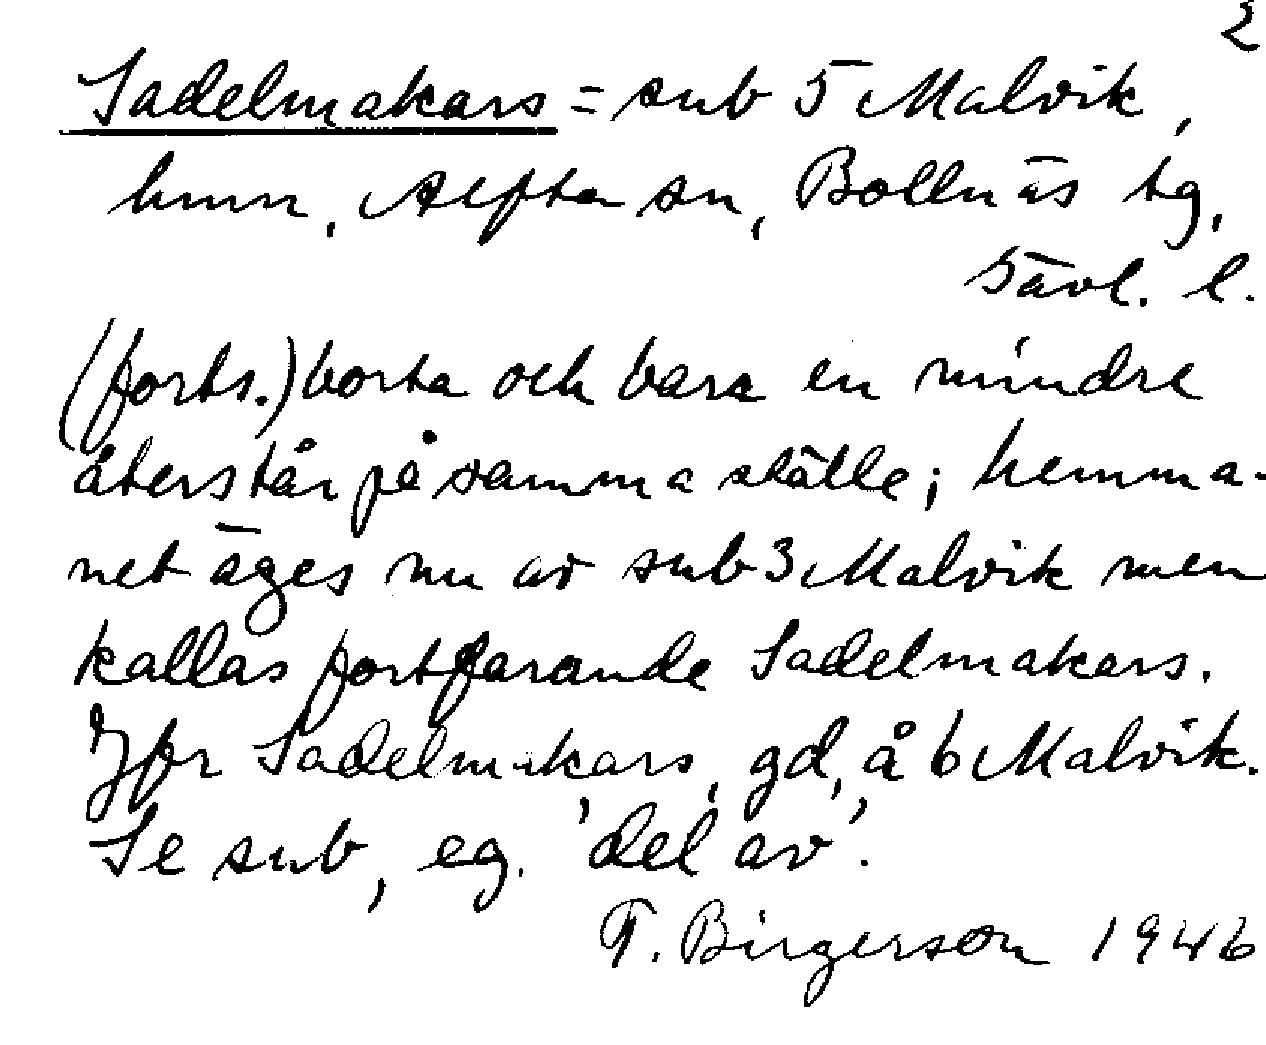 2
Sadelmakars = sub 5 Malvik,
hmn, Alfta sn, Bollnäs tg,
Gävl. l.
(forts.) borta och bara en mindre
återstår på samma ställe; hemma-
net äges nu av sub 3 Malvik men
kallas fortfarande Sadelmakars.
Jfr Sadelmakars, gd, å 6 Malvik.
Se sub, eg. 'del av'.
T. Birgerson 1946